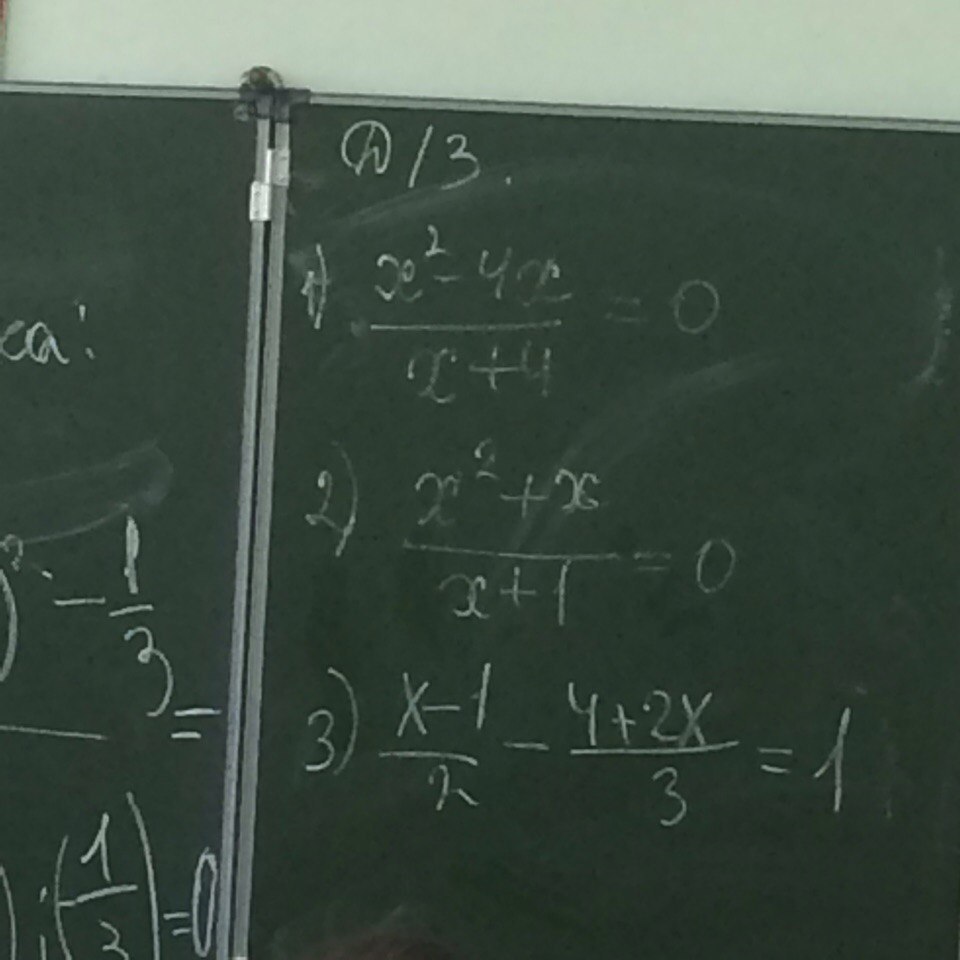 Д/З.
1) \frac{x^2-4x}{x+4} = 0
2) \frac{x^2+x}{x+1} = 0
3) \frac{x-1}{2} - \frac{4+2x}{3} = 1
)^2 - \frac{1}{3} =
) : (-\frac{1}{3}) = 0